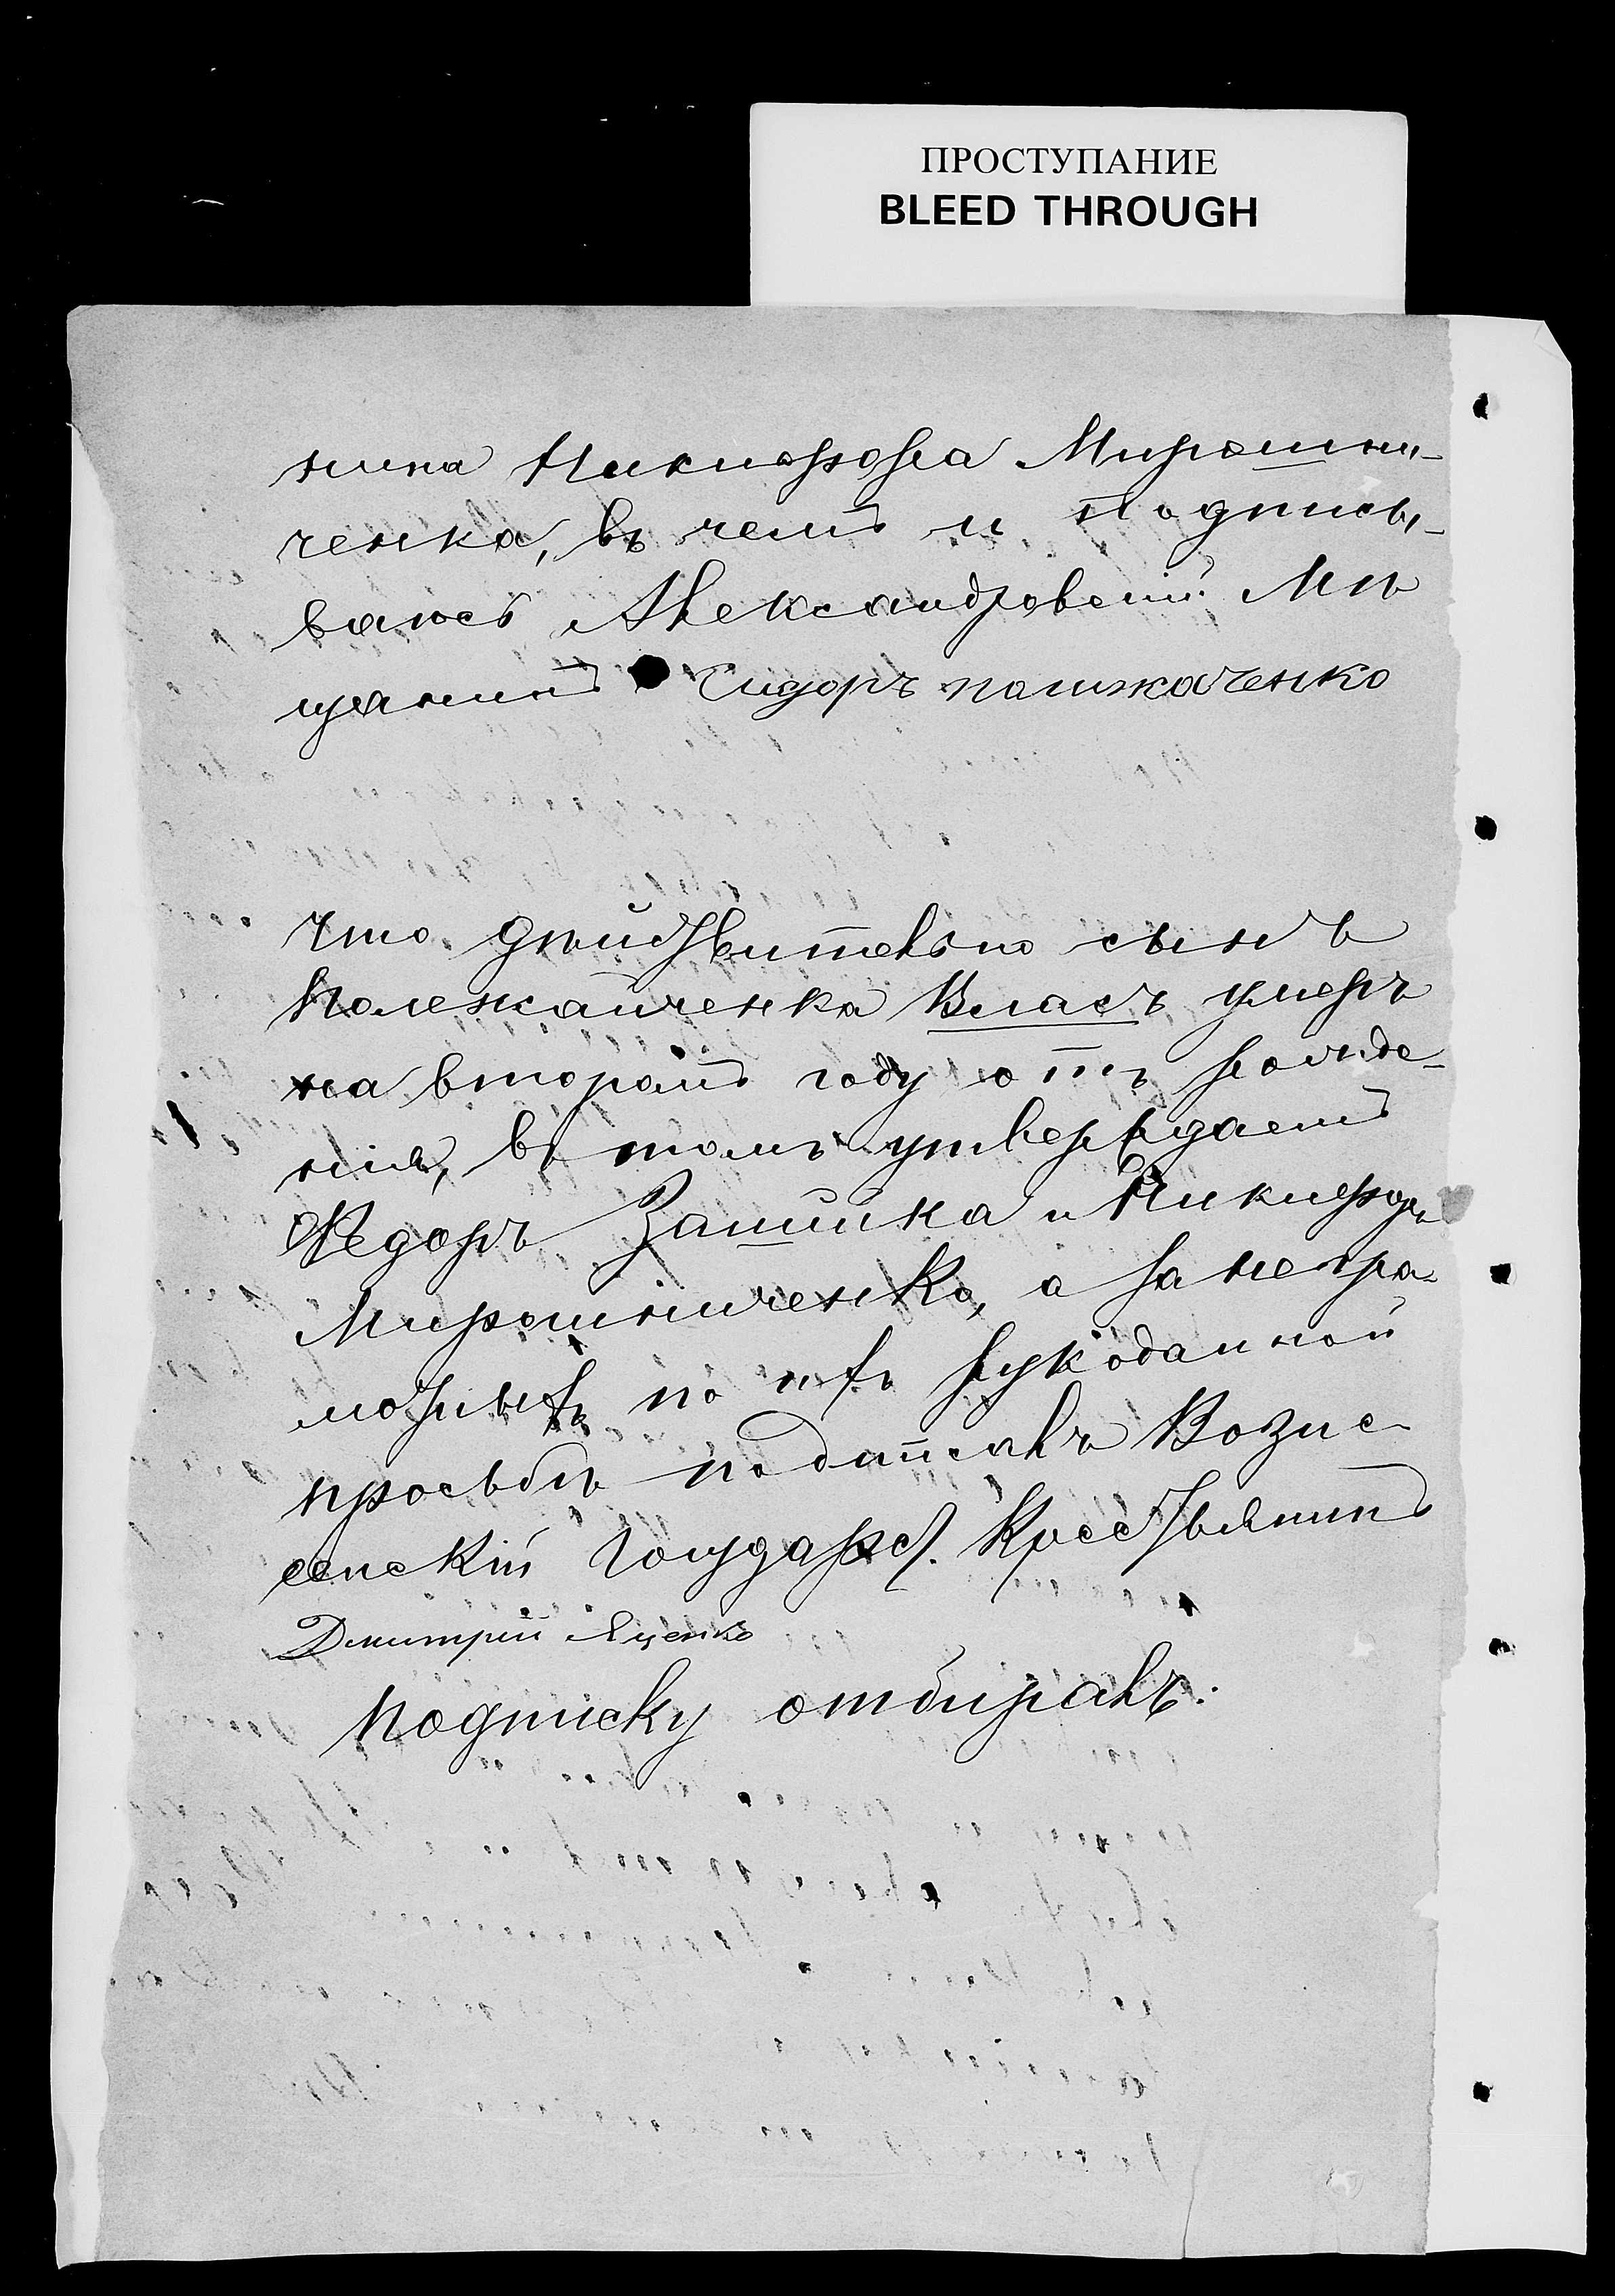 ПРОСТУПАНИЕ
BLEED THROUGH
нина Никифора Мирошни-
ченка, въ чемъ и подписы-
ваюсь Александровскій Мѣ
щанинъ Сидоръ
что дѣйствительно сынъ
Полежайченка Власъ умеръ
на второмъ году отъ рожде-
нія, въ томъ утверждаемъ
Федоръ Запишка и Никифоръ
Мирошниченко, а за негра-
мотныхъ по ихъ рукоданной
просьбѣ подписалъ Вознес
сенскій Государст. Крестьянинъ
Дмитрій Яценко
Подписку отбиралъ: